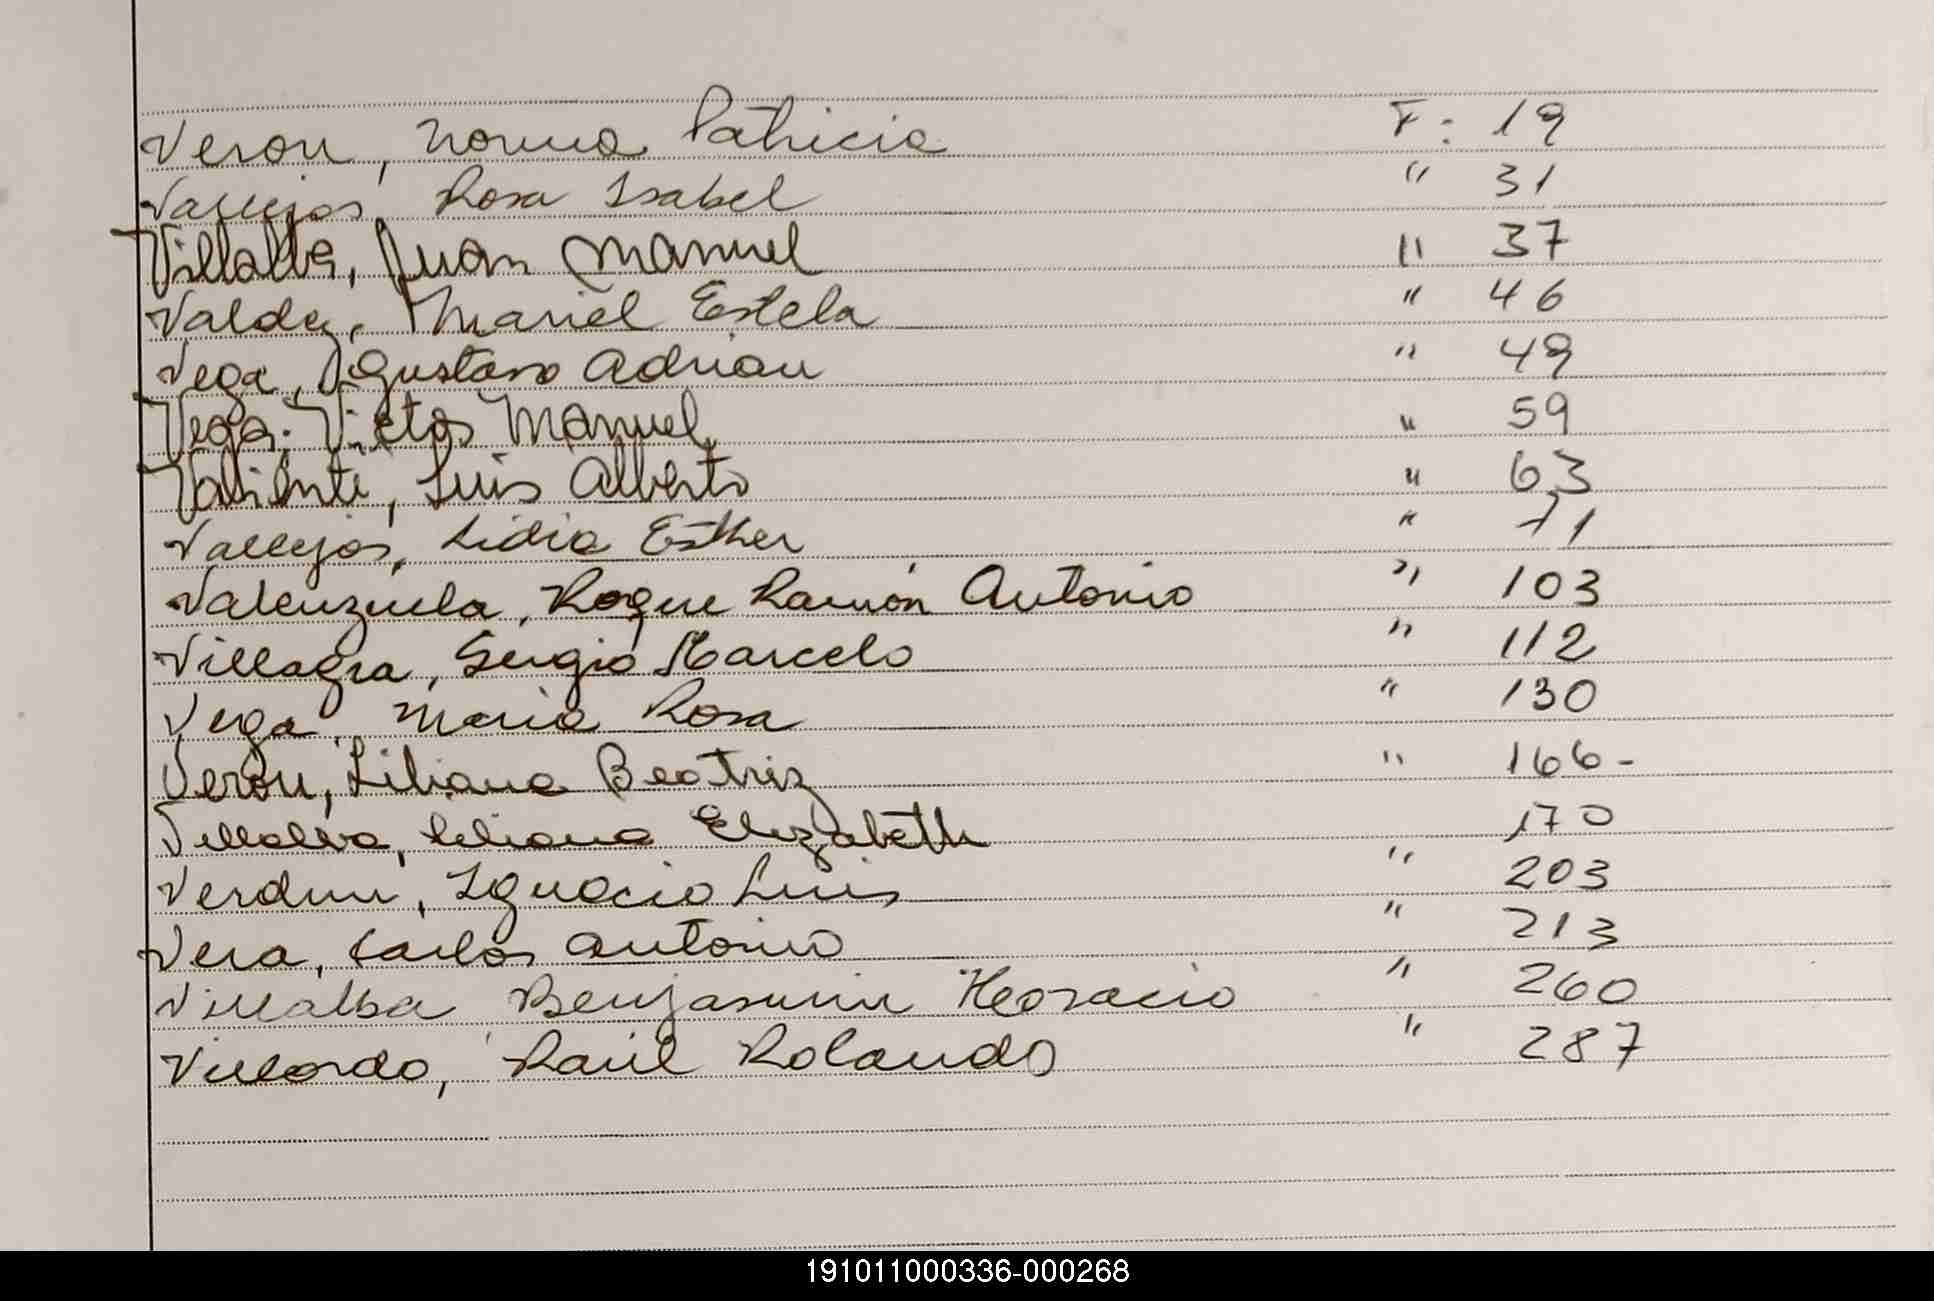 Veron, Norma Patricia F: 19
Vallejos, Rosa Isabel " 31
Villalba, Juan Manuel " 37
Valdez, Mariel Estela " 46
Vega, Gustavo Adrian " 49
Vega, Victor Manuel " 59
Valiente, Luis Alberto " 63
Vallejos, Lidia Esther " 71
Valenzuela, Roque Ramón Antonio " 103
Villagra, Sergio Marcelo " 112
Vega, Maria Rosa " 130
Veron, Liliana Beatriz " 166-
Villalba, Liliana Elizabeth 170
Verdun, Ignacio Luis " 203
Vera, Carlos Antonio " 213
Villalba Benjamin Horacio " 260
Villordo, Raúl Rolando " 287
191011000336-000268